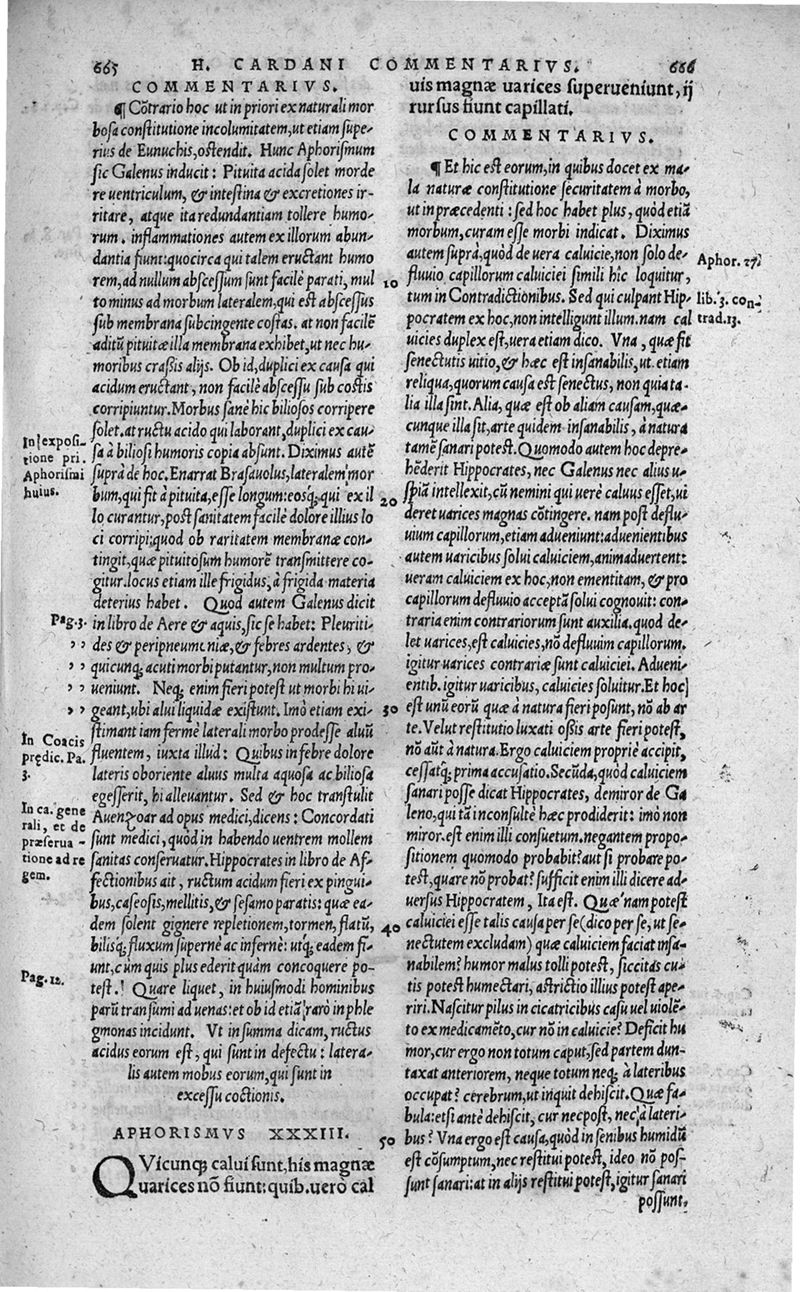 665 H. CARDANI COMMENTARIVS. 666
COMMENTARIVS.
¶ Cõtrario hoc ut in priori ex naturali mor
bosa constitutione incolumitatem, ut etiam supe-
rius de Eunuchis, ostendit. Hunc Aphorismum
sic Galenus inducit: Pituita acida solet morde
re uentriculum, & intestina & excretiones ir-
ritare, atque ita redundantiam tollere humo-
rum. inflammationes autem ex illorum abun-
dantia fiunt: quocirca qui talem eructant humo
rem, ad nullum abscessum sunt facilè parati, mul
to minus ad morbum lateralem, qui est abscessus
sub membrana subcingente costas. at non facilè
aditũ pituitæ illa membrana exhibet, ut nec hu-
moribus crassis alijs. Ob id, duplici ex causa qui
acidum eructant, non facilè abscessu sub costis
corripiuntur. Morbus sanè hic biliosos corripere
solet. at ructu acido qui laborant, duplici ex cau-
sa à biliosi humoris copia absunt. Diximus autẽ
suprà de hoc. Enarrat Brasauolus, lateralem mor
bum, qui fit à pituita, esse longum: eosq́; qui ex il
lo curantur, post sanitatem facilè dolore illius lo
ci corripi; quod ob raritatem membranæ con-
tingit, quæ pituitosum humorẽ transmittere co-
gitur. locus etiam ille frigidus, à frigida materia
deterius habet. Quod autem Galenus dicit
in libro de Aere & aquis, sic se habet: Pleuriti-
des & peripneumoniæ, & febres ardentes, &
quicunq; acuti morbi putantur, non multum pro-
ueniunt. Neq; enim fieri potest ut morbi hi ui-
geant, ubi alui liquidæ existunt. Imò etiam exi-
stimant iam fermè laterali morbo prodesse aluũ
fluentem, iuxta illud: Quibus in febre dolore
lateris oboriente aluus multa aquosa ac biliosa
egesserit, hi alleuantur. Sed & hoc transtulit
Auenzoar ad opus medici, dicens: Concordati
sunt medici, quòd in habendo uentrem mollem
sanitas conseruatur. Hippocrates in libro de Af-
fectionibus ait, ructum acidum fieri ex pingui-
bus, caseosis, mellitis, & sesamo paratis: quæ ea-
dem solent gignere repletionem, tormen, flatũ,
bilisq́; fluxum supernè ac infernè: utq́; eadem fi-
unt, cùm quis plus ederit quàm concoquere po-
test. Quare liquet, in huiusmodi hominibus
parũ transumi ad uenas: et ob id etiã raró in phle
gmonas incidunt. Vt in summa dicam, ructus
acidus eorum est, qui sunt in defectu: latera-
lis autem mobus eorum, qui sunt in
excessu coctionis.
In exposi-
tione pri.
Aphorismi
huius.
Pag. 3.
In Coacis
prędic. Pa.
3.
In ca. gene
rali, et de
præserua-
tione ad re
gem.
Pag. 12.
APHORISMVS XXXIII.
QVicunq; calui sunt, his magnæ
uarices nõ fiunt: quib. uerò cal
10
20
30
40
50
uis magnæ uarices superueniunt, ij
rursus fiunt capillati.
COMMENTARIVS.
¶ Et hic est eorum, in quibus docet ex ma-
la naturæ constitutione securitatem à morbo,
ut in præcedenti: sed hoc habet plus, quòd etiã
morbum, curam esse morbi indicat. Diximus
autem suprà, quòd de uera caluicie, non solo de-
fluuio capillorum caluiciei simili hîc loquitur,
tum in Contradictionibus. Sed qui culpant Hip-
pocratem ex hoc, non intelligunt illum. nam cal
uicies duplex est, uera etiam dico. Vna, quæ fit
senectutis uitio, & hæc est insanabilis, ut etiam
reliqua, quorum causa est senectus, non quia ta-
lia illa sint. Alia, quæ est ob aliam causam, quæ-
cunque illa sit, arte quidem insanabilis, à natura
tamẽ sanari potest. Quomodo autem hoc depre-
hẽderit Hippocrates, nec Galenus nec alius u-
spiã intellexit, cũ nemini qui uerè caluus esset, ui
deret uarices magnas cõtingere. nam post deflu-
uium capillorum, etiam adueniunt: aduenientibus
autem uaricibus solui caluiciem, animaduertent:
ueram caluiciem ex hoc, non ementitam, & pro
capillorum defluuio acceptã solui cognouit: con-
traria enim contrariorum sunt auxilia, quod de-
let uarices, est caluicies, nõ defluuium capillorum.
igitur uarices contrariæ sunt caluiciei. Adueni-
entib. igitur uaricibus, caluicies soluitur. Et hoc
est unũ eorũ quæ à natura fieri possunt, nõ ab ar
te. Velut restitutio luxati ossis arte fieri potest,
nõ aũt à natura. Ergo caluiciem propriè accipit,
cessatq́; prima accusatio. Secũda, quòd caluiciem
sanari posse dicat Hippocrates, demiror de Ga
leno, qui tã inconsultè hæc prodiderit: imò non
miror. est enim illi consuetum. negantem propo-
sitionem quomodo probabit? aut si probare po-
test, quare nõ probat? sufficit enim illi dicere ad-
uersus Hippocratem, Ita est. Quæ nam potest
caluiciei esse talis causa per se (dico per se, ut se-
nectutem excludam) quæ caluiciem faciat insa-
nabilem? humor malus tolli potest, siccitas cu-
tis potest humectari, astrictio illius potest ape-
riri. Nascitur pilus in cicatricibus casu uel uiolẽ-
to ex medicamẽto, cur nõ in caluicie? Deficit hu
mor, cur ergo non totum caput, sed partem dun-
taxat anteriorem, neque totum neq; à lateribus
occupat? cerebrum, ut inquit dehiscit. Quæ fa-
bula: etsi antè dehiscit, cur nec post, nec à lateri-
bus? Vna ergo est causa, quòd in senibus humidũ
est cõsumptum, nec restitui potest, ideo nõ pos-
sunt sanari: at in alijs restitui potest, igitur sanari
possunt.
Aphor. 27.
lib. 3. con-
trad. 13.